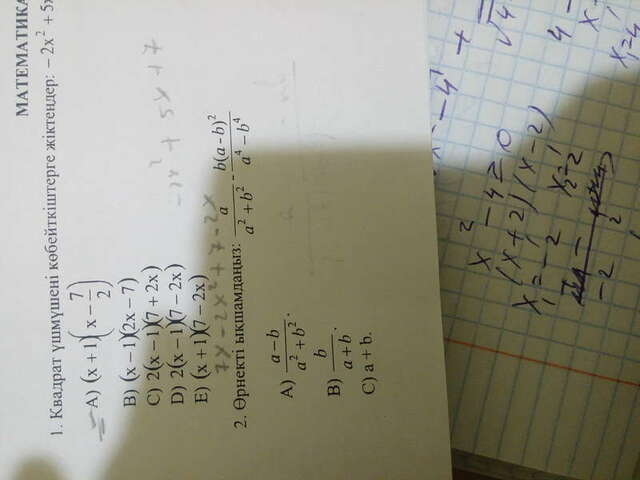 МАТЕМАТИКА
1. Квадрат үшмүшені көбейткіштерге жіктеңдер: − 2x² + 5x
A) (x + 1)(x − 7/2)
B) (x − 1)(2x − 7)
C) 2(x − 1)(7 + 2x)
D) 2(x − 1)(7 − 2x)
E) (x + 1)(7 − 2x)
−2x² + 5x + 7
7x − 2x² + 7 − 2x
2. Өрнекті ықшамдаңыз: a/(a² + b²) - b(a - b)²/(a⁴ − b⁴)
A) (a − b)/(a² + b²).
B) b/(a + b).
C) a + b.
x² − 4 ≥ 0
(x + 2)(x − 2)
x₁ = −2 x₂ = 2
−2 2
4 −
x₁ = 4